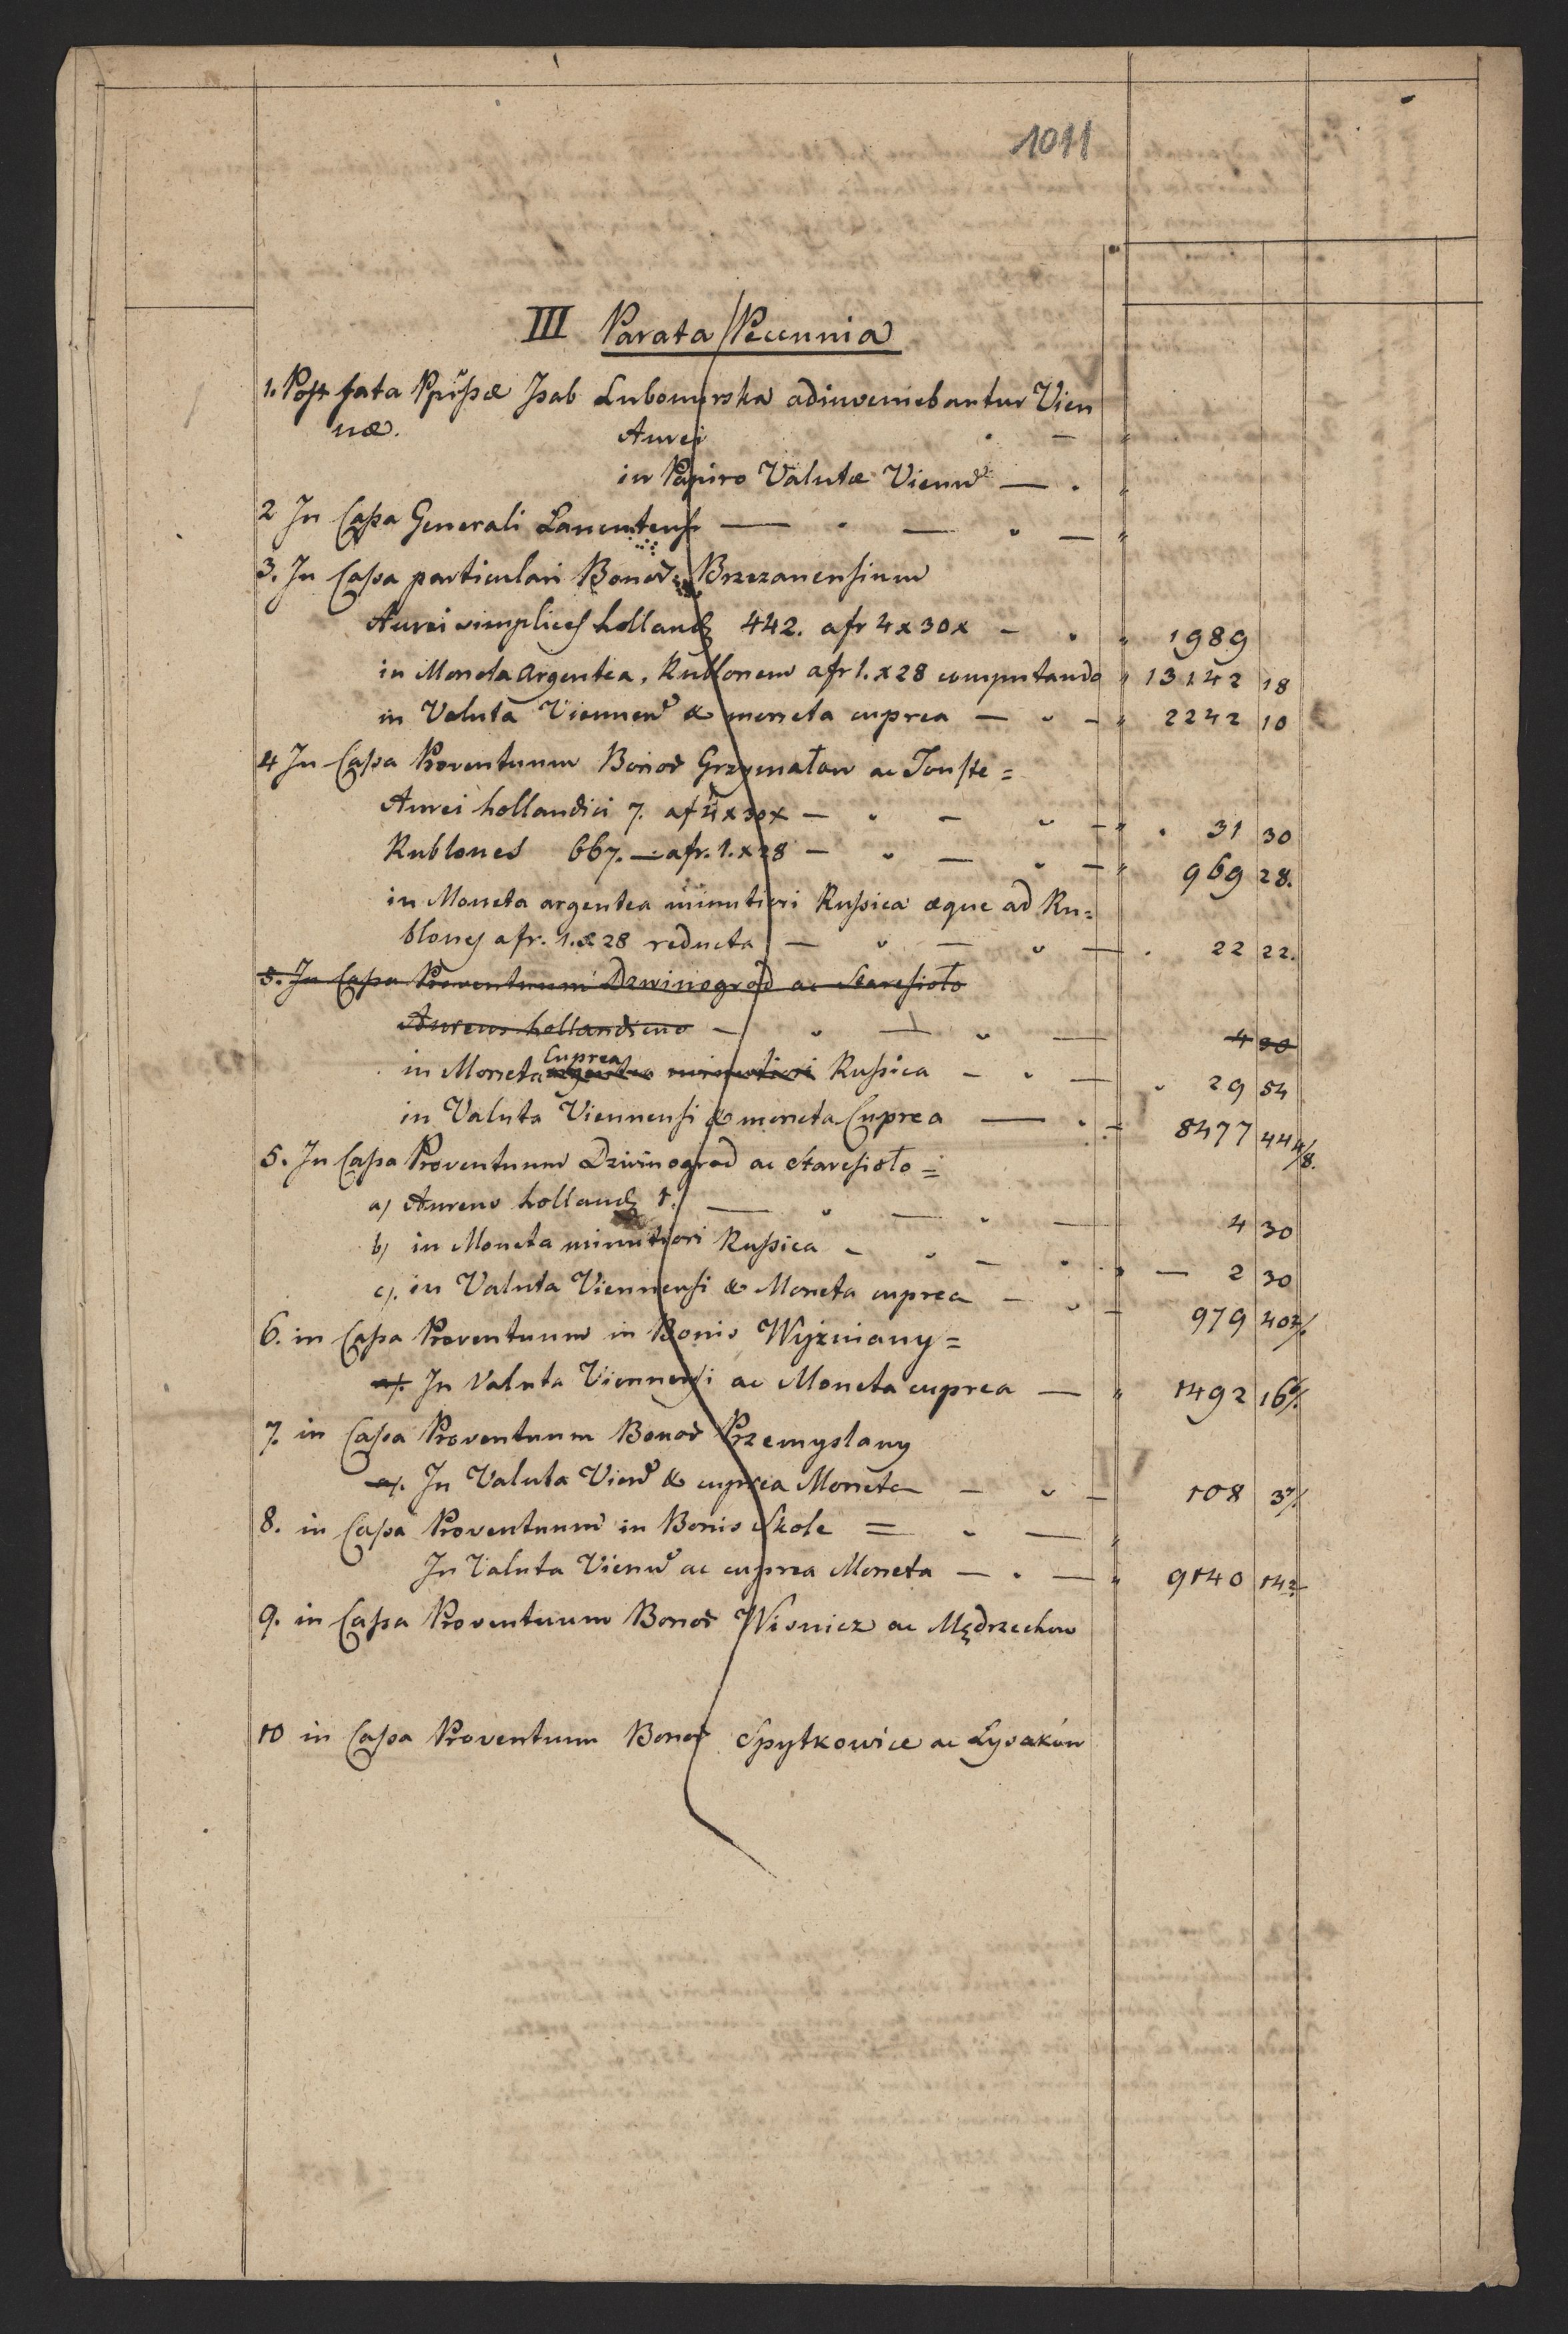 1011
III Parata Pecunnia
1. Post fata Ppissæ Isab Lubomirska adinveniebantur Vien
næ. Aurei
in Papiro Valutæ Vienn
2 In Cassa Generali Lancutensi
3. In Cassa particulari Bonor Brzezanensium
Aurei simplices holland 442. a fr 4 x 30x 1989
in Moneta argentea, Rublonem a fr 1. x 28 computando 13142 18
in Valuta Viennen & moneta cuprea 2242 10
4 In Cassa Proventuum Bonor Grzymałow ac Touste =
Aurei hollandici 7. a f 4 x 30x 31 30
Rublones 667. — a fr. 1. x 28 969 28.
in Moneta argentea minutiori Russica æque ad Ru=
blones a fr. 1. x 28 reducta 22 22.
5. In Cassa Proventuum Dzwinogrod ac Staresioło
Aureus hollandicus 4 30
in Moneta argentea Cuprea minutiori Russica 29 54
in Valuta Viennensi & moneta Cuprea 8477 44 4/8.
5. In Cassa Proventuum Dzwinogrod ac Staresioło =
a) Aureus holland 1. 4 30
b) in Moneta minutiori Russica — 2 30
c). in Valuta Viennensi & Moneta cuprea 979 40 2/.
6. in Cassa Proventuum in Bonis Wyżniany =
a). In Valuta Viennensi ac Moneta cuprea 1492 16 6/.
7. in Cassa Proventuum Bonor Przemyslany
a). In Valuta Vien & cuprea Moneta 108 3 7/.
8. in Cassa Proventuum in Bonis Skole =
In Valuta Vienn ac cuprea Moneta 9140 14 2
9. in Cassa Proventuum Bonor Wisnicz ac Mędrzechow
10 in Cassa Proventuum Bonor Spytkowice ac Łysaków